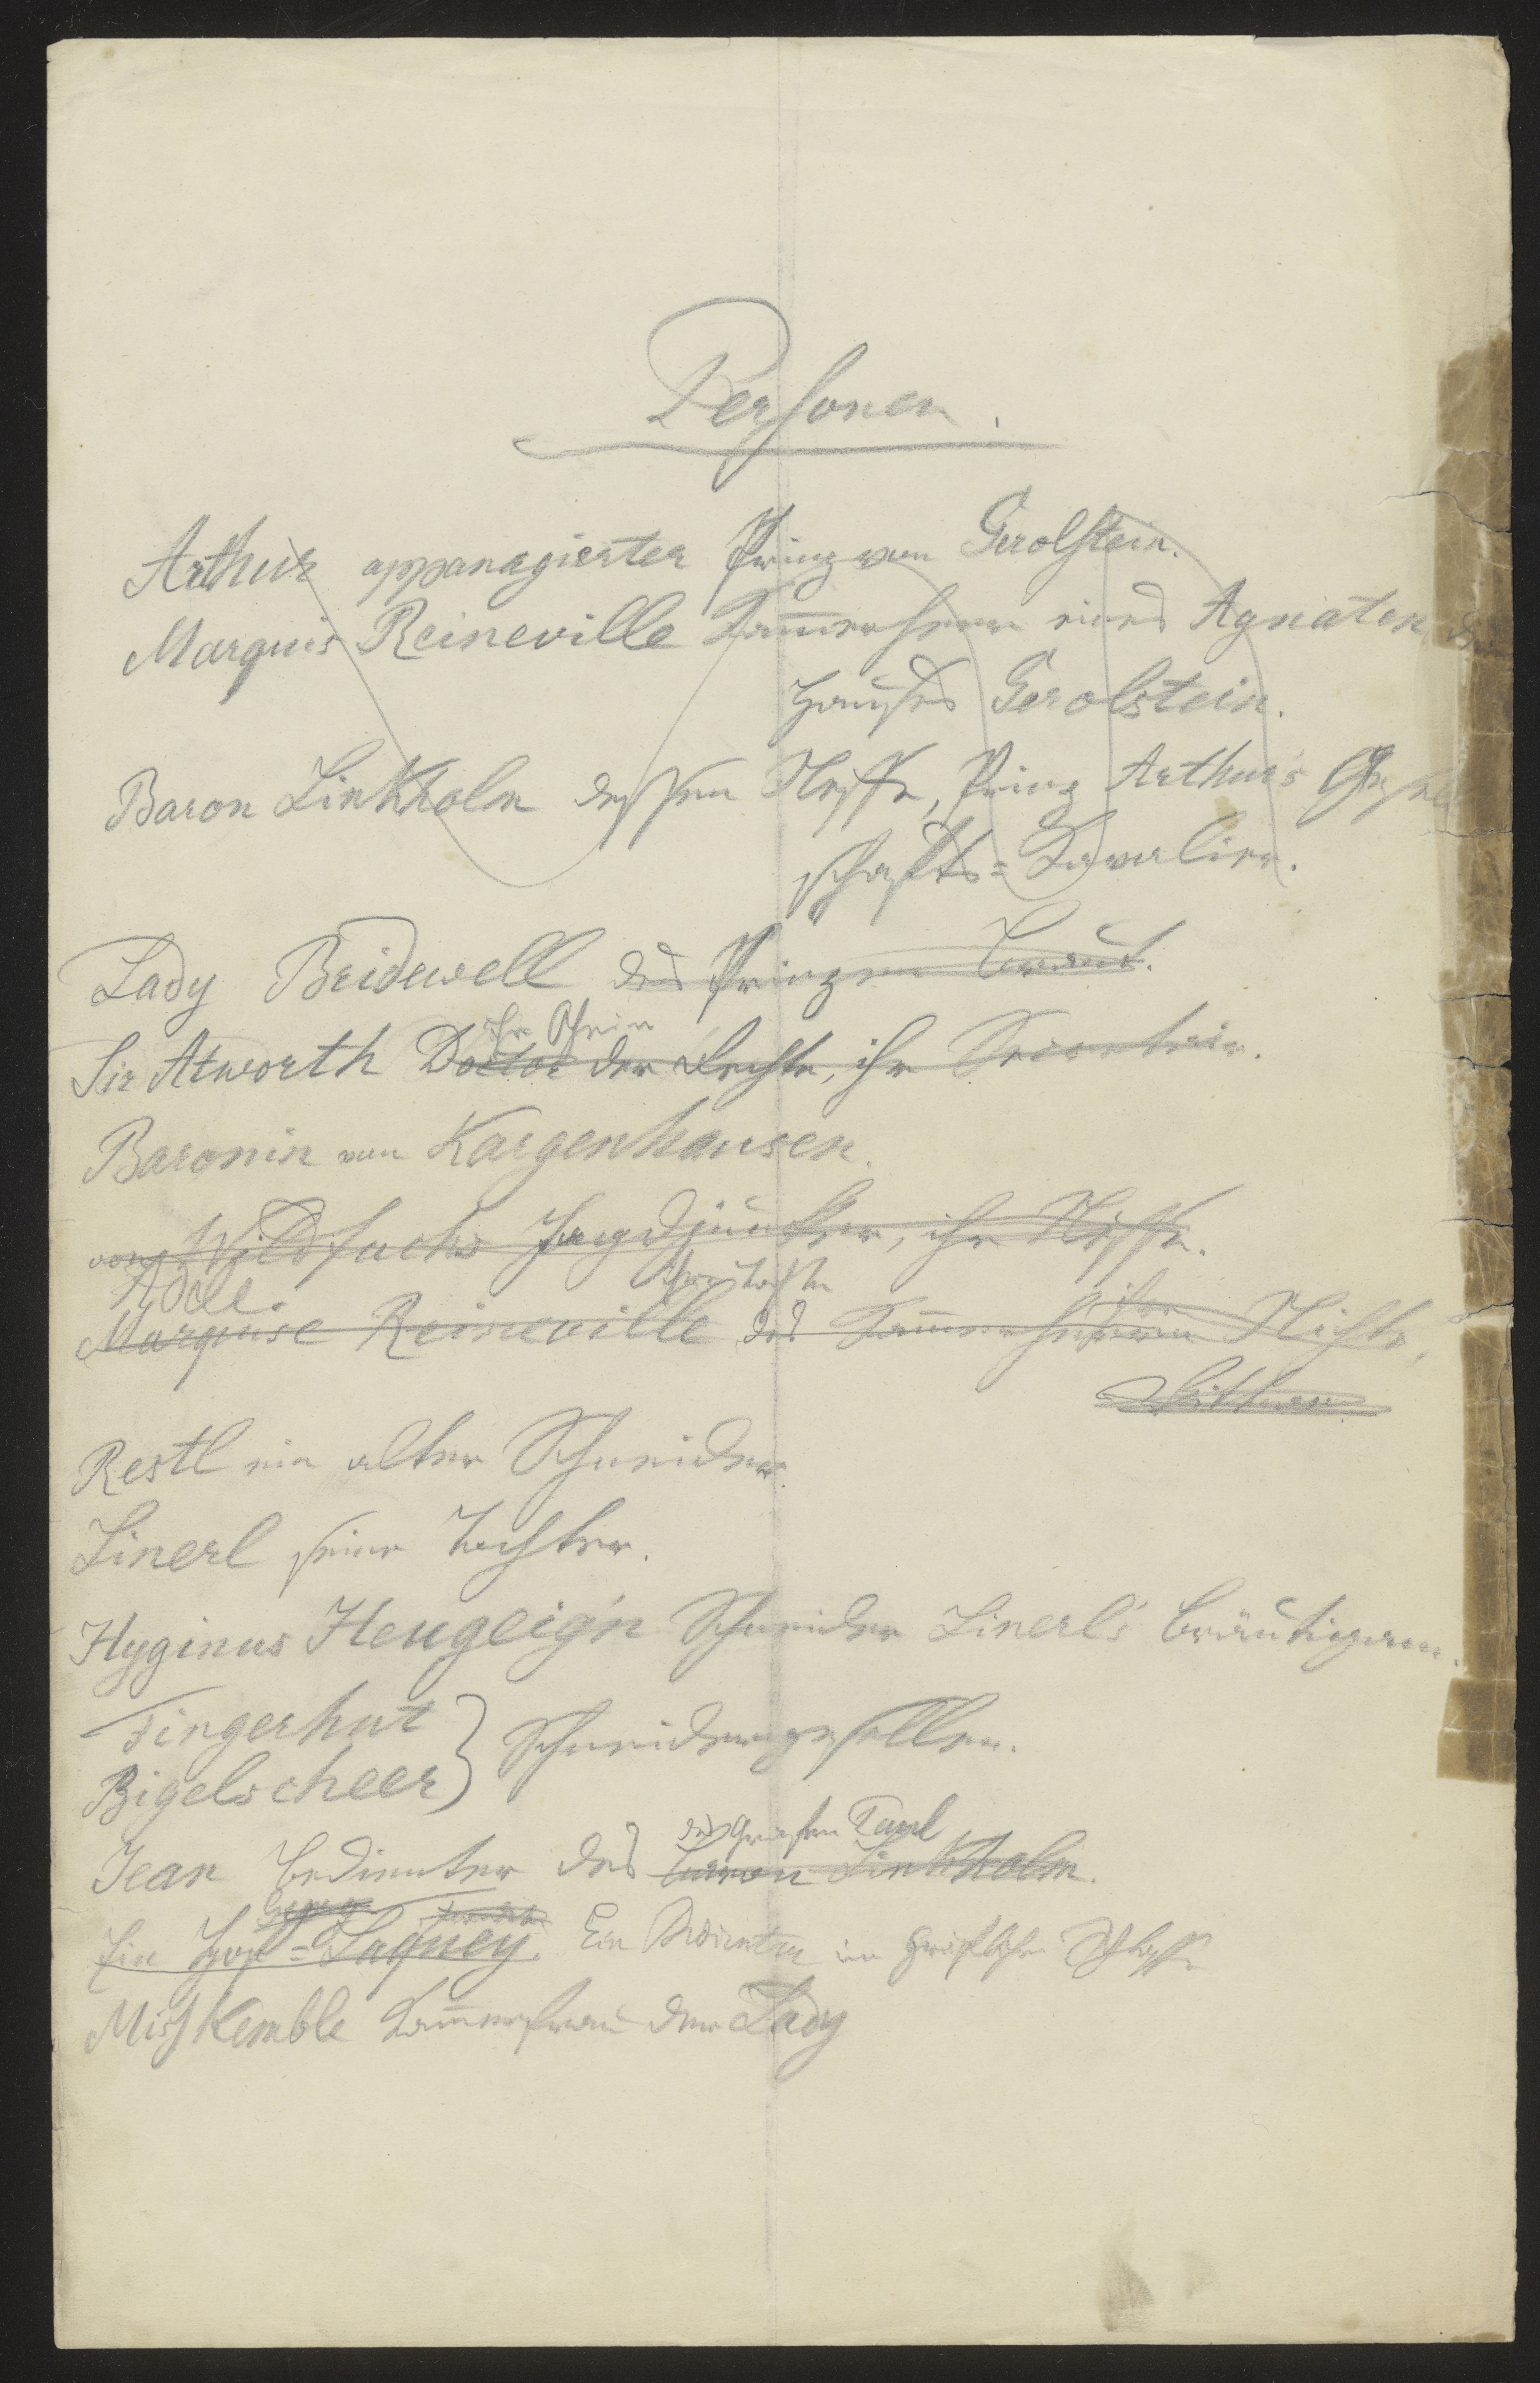 Personen.
Arthur appanagierter Prinz von Gerolstein.
Marquis Reineville Kam̅erherr eines Agnaten des
Hauses Gerolstein.
Baron Linkholm dessen Neffe, Prinz Arthur's Gesell
schafts=Kavalier.
Lady Bridewell des Prinzen Braut.
ihr Ohein
Sir Atworth Doctor der Rechte, ihr Secretair.
Baronin von Kargenhausen.
von Wildfuchs Jagdjunker, ihr Neffe.
Adele.
Marquise Reineville des Kam̅erherrn Nichte,
Restl ein alter Schneider.
Linerl seine Tochter.
Hyginus Heugeig'n Schneider Linerl's Bräutigam.
Fingerhut
Bigelscheer } Schneidergesellen.
des Grafen Carl
Jean Bedienter des Baron Linkholm.
Ein Hof=Laquey. Ein Bedienter im gräflichen Schloss
Miss Kemble Kam̅erfrau der Lady